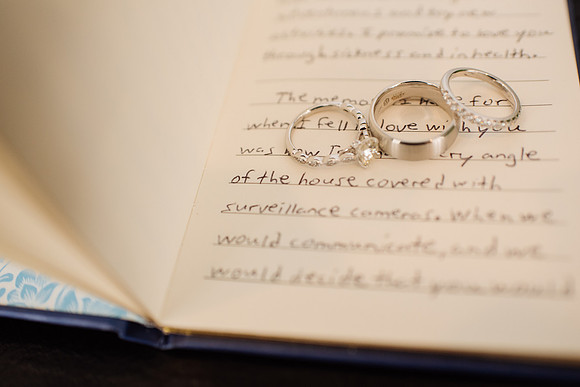 I promise to love you
through sickness and in health.
The memo I have for
when I fell love with you
was how every angle
of the house covered with
surveillance cameras. When we
would communicate, and we
would decide that you would